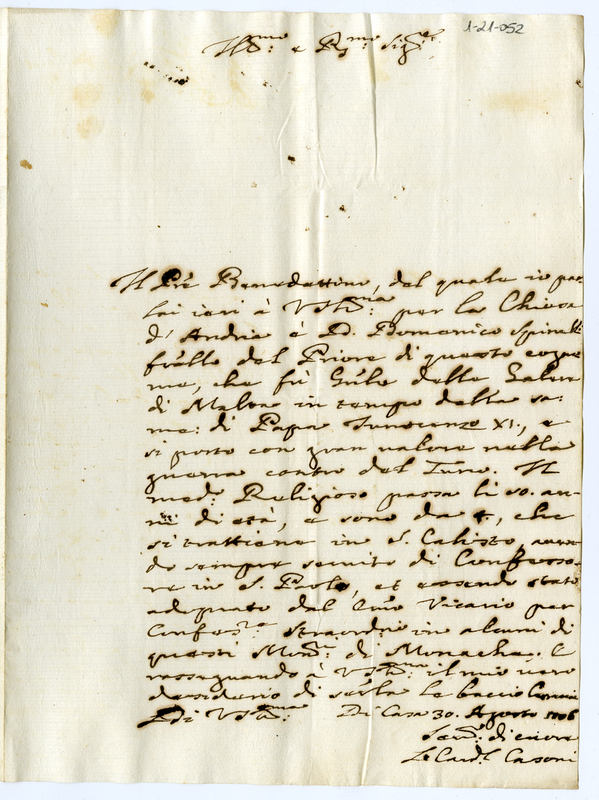 1-21-052
Ill.mo e R.mo Sig.re
Il Pre Benedettino, del quale io par
lai ieri à VS Ill.ma per la Chiesa
d'Andria è D. Domenico Spinelli
fratello del Priore di questo cogno
me, che fù Gnle delle Galere
di Malta in tempo della sa:
me: di Papa Innocenzo XI., e
si portò con gran valore nella
guerra contro del Turco. Il
med.o Religioso passa li 50. an
ni di età, e sono da, che
si trattiene in S. Calisto, aven
do sempre servito di Confesso
re in S. Paolo, et essendo stato
adoprato dal Vicario per
Confess.re straordrio in alcuni di
questi Mon.ri di Monache. E
rassegnando à VS Ill.ma il mio vero
desiderio di servla le bacio
Di VS Ill.ma Di Casa 30. Agosto 1706
Ser.re di cuore
Le Card.l Casoni